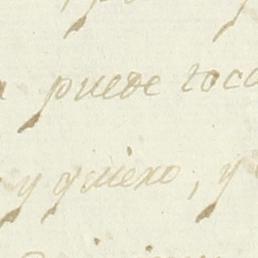 puede toca
y quiero, y